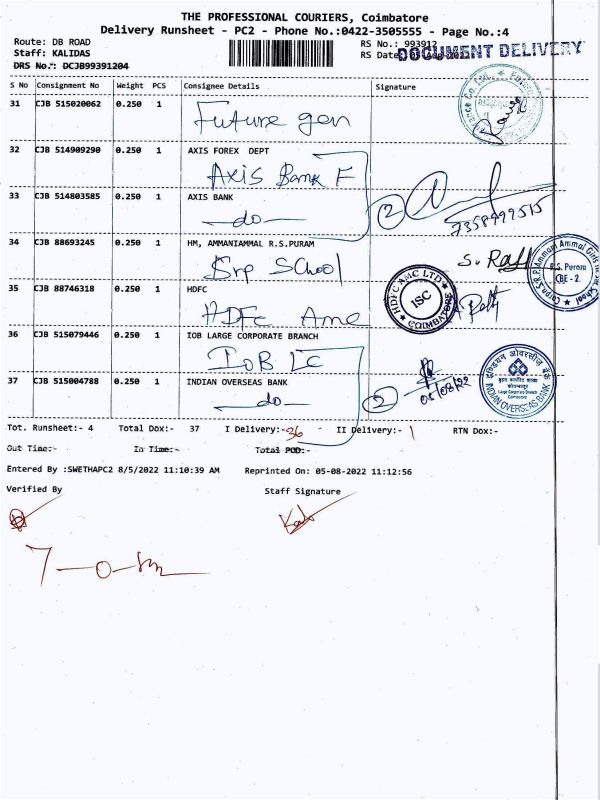 THE PROFESSIONAL COURIERS, Coimbatore
Delivery Runsheet - PC2 - Phone No.:0422-3505555 - Page No.:4
Route: DB ROAD
RS No.: 993912
Staff: KALIDAS
RS Date
DOCUMENT DELIVERY
DRS No.: DCJB99391204
S No Consignment No Weight PCS Consignee Details Signature
31 CJB 515020062 0.250 1
Future gen
32 CJB 514909290 0.250 1 AXIS FOREX DEPT
Axis Bank F
33 CJB 514803585 0.250 1 AXIS BANK
do
2
7358999515
34 CJB 88693245 0.250 1 HM, AMMANIAMMAL R.S.PURAM
Srp School
R.S. Puram
CBE - 2.
35 CJB 88746318 0.250 1 HDFC
HDFC Amc
HDFC AMC LTD
ISC
COIMBATORE
36 CJB 515079446 0.250 1 IOB LARGE CORPORATE BRANCH
IOB LC
37 CJB 515004788 0.250 1 INDIAN OVERSEAS BANK
do
2
05/08/22
इण्डियन ओवरसीज़ बैंक
Large Corporate Branch
Coimbatore
INDIAN OVERSEAS BANK
Tot. Runsheet:- 4 Total Dox:- 37 I Delivery:-36 II Delivery:- 1 RTN Dox:-
Out Time:- In Time:- Total POD:-
Entered By :SWETHAPC2 8/5/2022 11:10:39 AM Reprinted On: 05-08-2022 11:12:56
Verified By Staff Signature